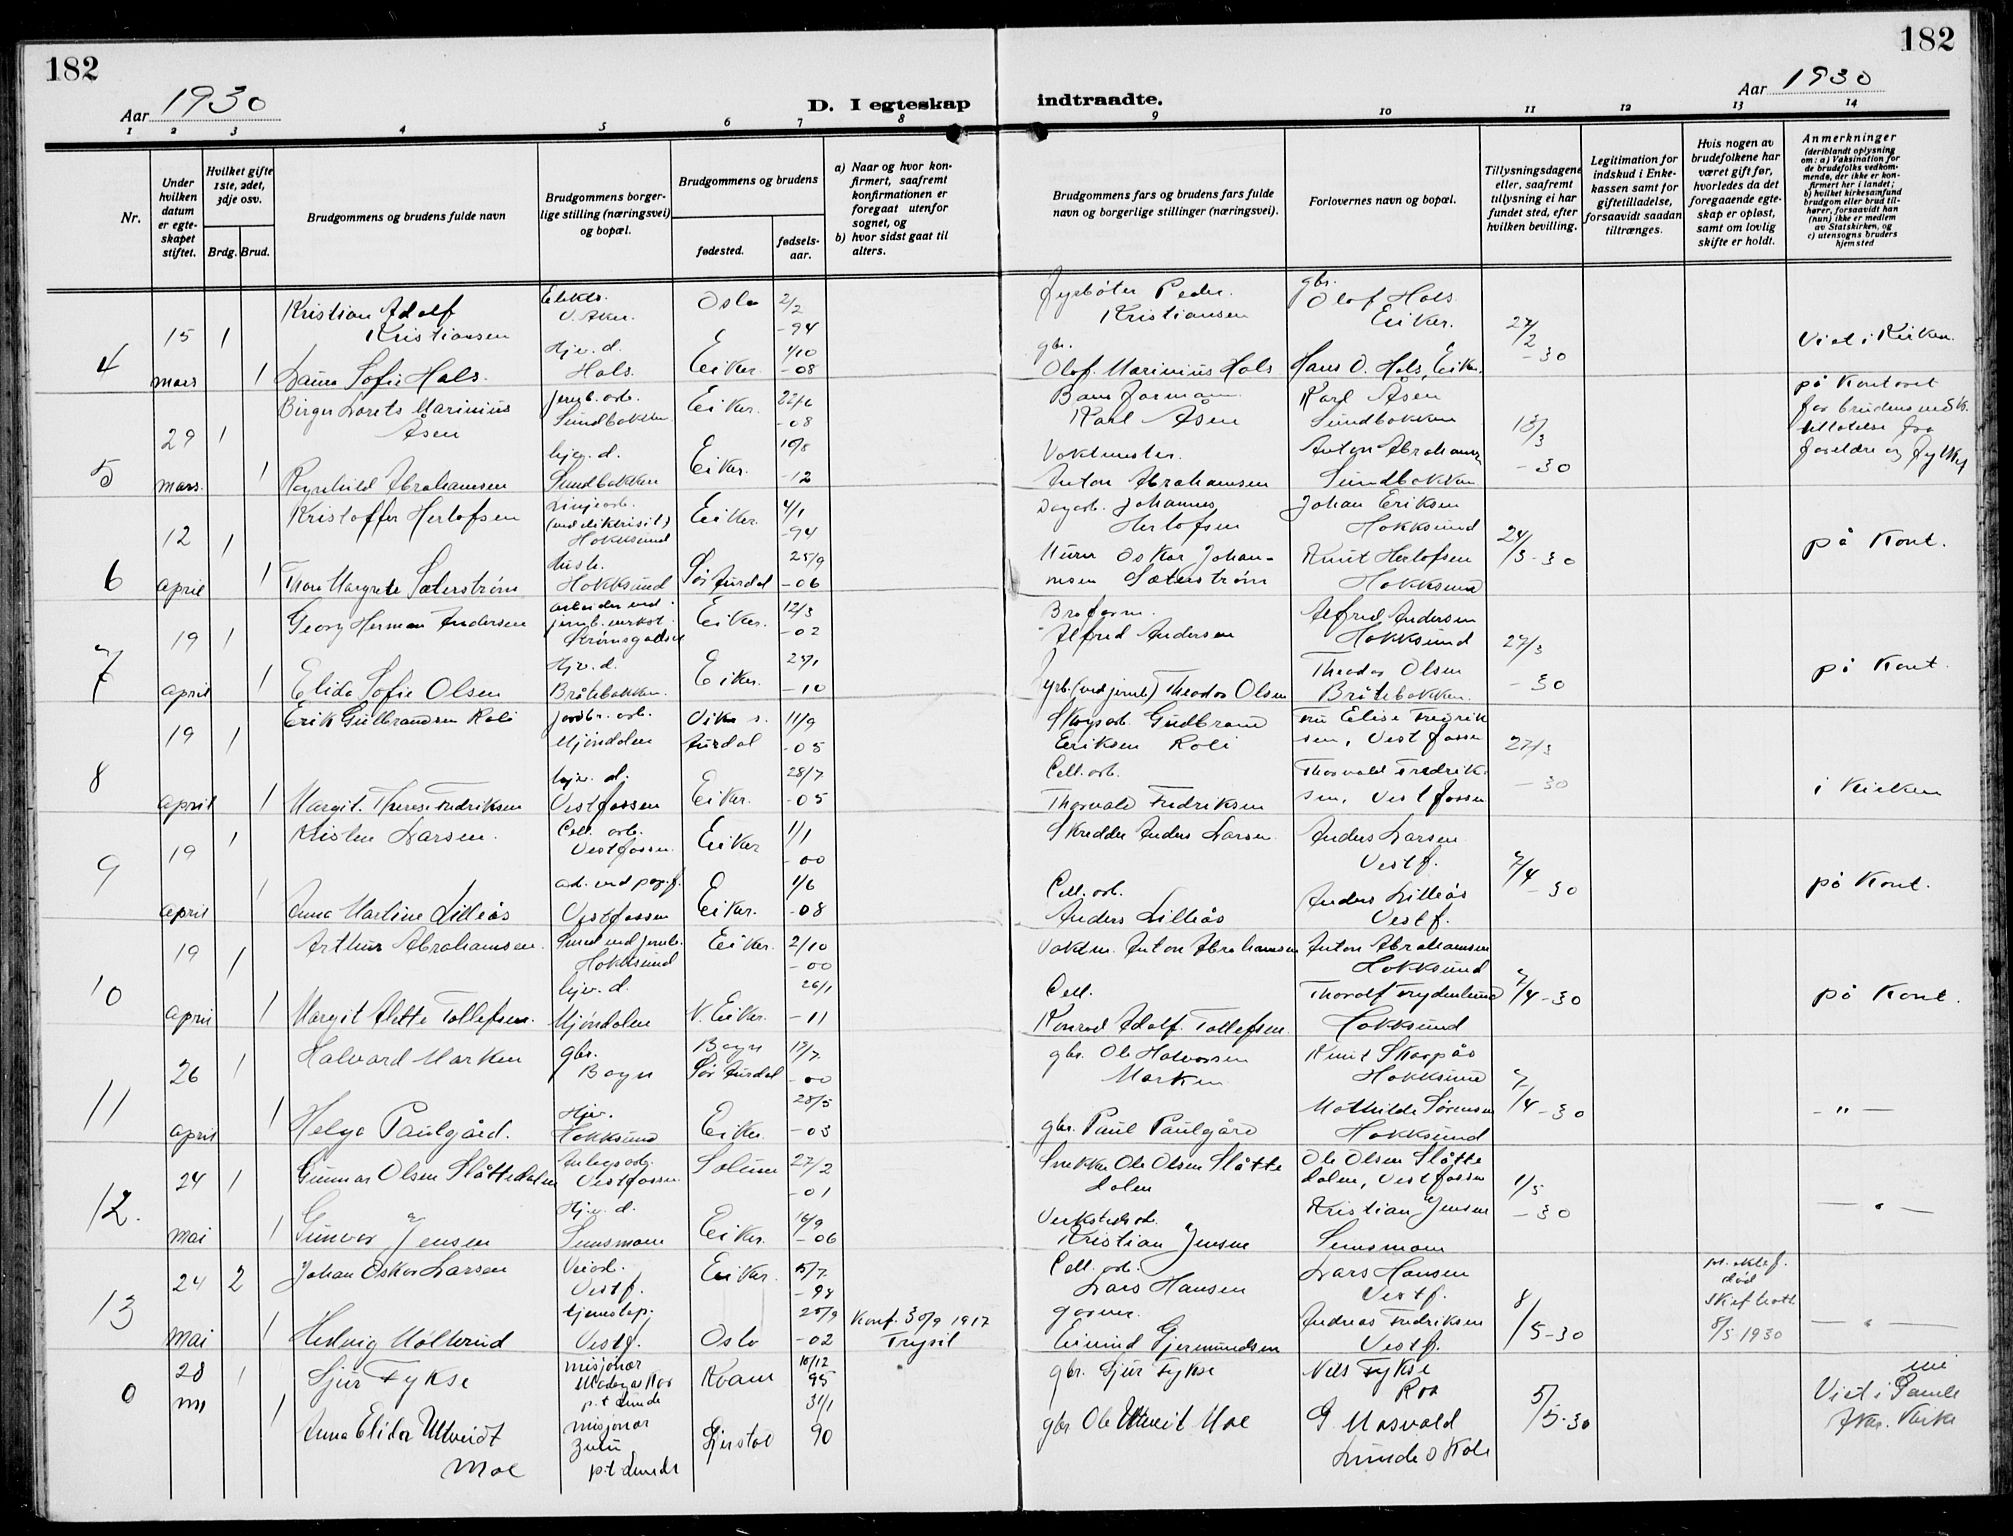 182
182
Aar 1930
D. I egteskap
indtraadte.
Aar 1930
1 2 3 4 5 6 7 8 9 10 11 12 13 14
Nr.
Under hvilken datum er egteskapet stiftet.
Hvilket gifte 1ste, 2det, 3dje osv.
Brdg. Brud.
Brudgommens og brudens fulde navn
Brudgommens borgerlige stilling (næringsvei) og bopæl.
Brudgommens og brudens
fødested.
fødselsaar.
a) Naar og hvor konfirmert, saafremt konfirmationen er foregaat utenfor sognet, og
b) hvor sidst gaat til alters.
Brudgommens fars og brudens fars fulde navn og borgerlige stillinger (næringsvei).
Forlovernes navn og bopæl.
Tillysningsdagene eller, saafremt tillysning ei har fundet sted, efter hvilken bevilling.
Legitimation for indskud i Enkekassen samt for giftetilladelse, forsaavidt saadan tiltrænges.
Hvis nogen av brudefolkene har været gift før, hvorledes da det foregaaende egteskap er opløst, samt om lovlig skifte er holdt.
Anmerkninger
(deriblandt oplysning om: a) Vaksination for de brudefolks vedkommende, der ikke er konfirmert her i landet; b) hvilket kirkesamfund brudgom eller brud tilhører, forsaavidt han (hun) ikke er medlem av Statskirken, og c) utensogns bruders hjemsted
4 15 mars 1 Kristian Adolf Kristiansen V. Aker Oslo 2/2 -94 Fyrbøter Peder Kristiansen gbr. Olof Hals Eiker. 27/2 -30 Viet i Kirken.
1 Laura Sofie Hals. Hjv. d. Hals. Eiker. 1/10 -08 gbr. Olof Marinius Hals Hans O. Hals, Eiker.
5 29 mars. 1 Birger Lorets Marinius Åsen jernb. arb. Sundbakken Eiker. 22/6 -08 Karl Åsen Karl Åsen Sundbakken 13/3 -30 på Kontoret
1 Ragnhild Abrahamsen hjv. d. Sundbakken Eiker. 10/8 -12 Vaktmester. Anton Abrahamsen Anton Abrahamsen Sundbakken
6 12 april 1 Kristoffer Herlofsen Linjearb. Hokksund Eiker. 4/1 -94 Dagarb. Johannes Herlofsen Johan Eriksen Hokksund 24/3 -30 på Kont.
1 Thora Margrete Sæterstrøm Hokksund Sør Aurdal 25/9 -06 Murer Oskar Johannsen Sæterstrøm Knut Herlofsen Hokksund
7 19 april 1 Georg Herman Andersen arbeider ved jernb. verkst. Strømsgodset Eiker. 12/3 -02 Alfred Andersen Alfred Andersen Hokksund 27/3 -30 på Kont.
1 Elida Sofie Olsen Hjv. d. Bråtebakken. Eiker. 25/1 -10 Fyrb. (ved jernb.) Theodor Olsen Theodor Olsen Bråtebakken.
8 19 april 1 Erik Gulbrandsen Roli jordbr. arb. Mjøndalen Aurdal 11/9 -05 Skogsarb. Gudbrand Eriksen Roli Fru Elise Fredriksen, Vestfossen 27/3 -30 i Kirken
1 Margit Therese Fredriksen hjv. d. Vestfossen Eiker. 28/7 -05 Cell. arb. Thorvald Fredriksen Thorvald Fredriksen, Vestfossen
9 19 april 1 Kristen Larsen. Cell. arb. Vestfossen Eiker 1/1 -00 Skredder Anders Larsen Anders Larsen Vestf. 7/4 -30 på Kont.
1 Anna Martine Lilleås Vestfossen Eiker. 1/6 -08 Cell. arb. Anders Lilleås Anders Lilleås Vestf.
10 19 april 1 Arthur Abrahamsen. Smed ved jernb. Hokksund Eiker. 2/10 -00 Vaktm. Anton Abrahamsen Anton Abrahamsen Hokksund 7/4 -30 på Kont.
1 Margit Alette Tollefsen. hjv. d. Mjøndalen N. Eiker. 26/1 -11 Cell. Konrad Adolf Tollefsen Thoralf Frydenlund Hokksund
11 26 april 1 Halvard Marken gbr. Bagn Bagn Sør Aurdal 17/7 -00 gbr. Ole Halvorsen Marken Knut Skarpås Hokksund 7/4 -30 - " -
1 Helga Paulgård. Hjv. Hokksund Eiker 28/5 -03 gbr. Paul Paulgård Mathilde Sørensen Hokksund
12. 24 mai 1 Gunnar Olsen Slåttedalen Anlegsarb. Vestfossen Solum 27/2 -01 Snekker Ole Olsen Slåttedalen Ole Olsen Slåttedalen, Vestfossen 1/5 -30 - " -
1 Gunvor Jensen Hjv. d. Semsmoen Eiker. 16/9 -06 Verkstedarb. Kristian Jensen Kristian Jensen Semsmoen
13 24 mai 2 Johan Oskar Larsen Veiarb. Vestf. Eiker. 5/7 Cell. arb. Lars Hansen Lars Hansen Vestf. 8/5 -30 død 8/5 1930 - " -
1 Hedvig Møllerud Vestf. Oslo 25/9 -02 Konf. 30/9 1917 Trysil Eivind Gjermundsen Andreas Fredriksen Vestf.
0 28 1 Sjur Fykse misjonær p.t Lunde Kvam 10/12 95 gbr. Sjur Fykse Nils Fykse 5/5 -30 Viet i Gamle Aker Kirke
1 Anna Elida Utveidt Moe misjonær Zulu p.t Lunde Gjerstad 31/1 90 gbr Ole Utveit Moe G Masvald